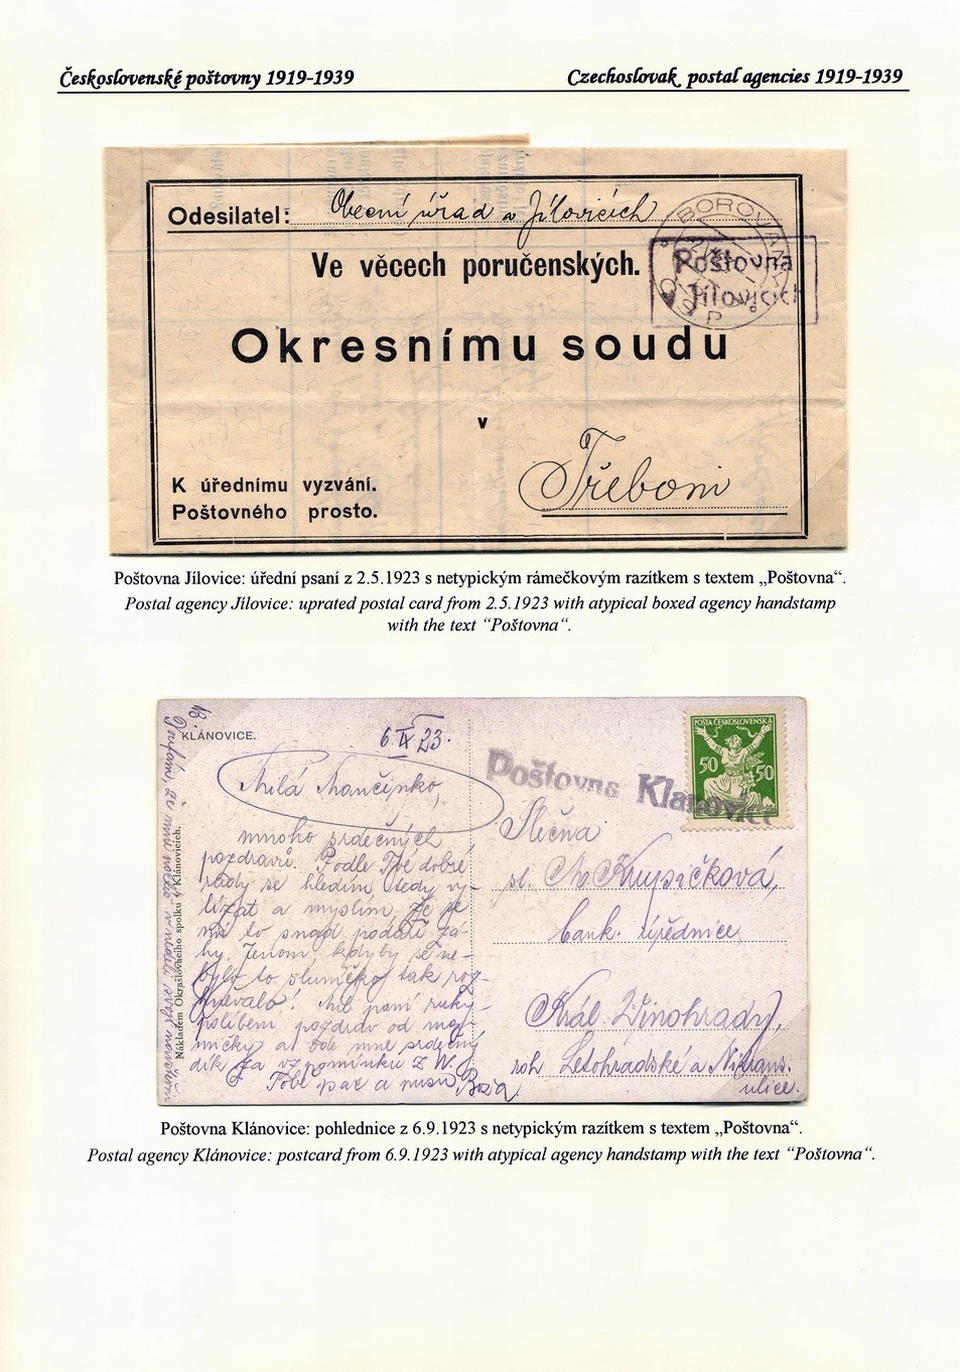 Československé poštovny 1919-1939
Czechoslovak postal agencies 1919-1939
Odesilatel: Obecní úřad v Jílovicích
BOROVANY
Poštovna
v Jílovicích
Ve věcech poručenských.
Okresnímu soudu
v
Třeboni
K úřednímu vyzvání.
Poštovného prosto.
Poštovna Jílovice: úřední psaní z 2.5.1923 s netypickým rámečkovým razítkem s textem „Poštovna“.
Postal agency Jílovice: uprated postal card from 2.5.1923 with atypical boxed agency handstamp
with the text “Poštovna“.
KLÁNOVICE.
6 IX 23.
POŠTA ČESKOSLOVENSKÁ
50 50
Poštovna Klanovice
Milá Mančinko,
mnoho srdečných
pozdravů. Podle Tvé dobré
rady se hledím tedy vy-
lízat a myslím, že se
mi to snad podaří zá-
hy. Jenom, kdyby se ne-
bylo to sluníčko tak roz-
hněvalo!
pozdrav od
a ode mne srdečný
dík za vzpomínku z W.
Tobě pac a pusu Boža.
Nákladem Okrašlovacího spolku v Klánovicích.
Slečna
sl. M. Krupičková,
bank. úřednice
Král. Vinohrady,
roh Letohradské a Nitrans.
ulice.
Poštovna Klánovice: pohlednice z 6.9.1923 s netypickým razítkem s textem „Poštovna“.
Postal agency Klánovice: postcard from 6.9.1923 with atypical agency handstamp with the text “Poštovna“.